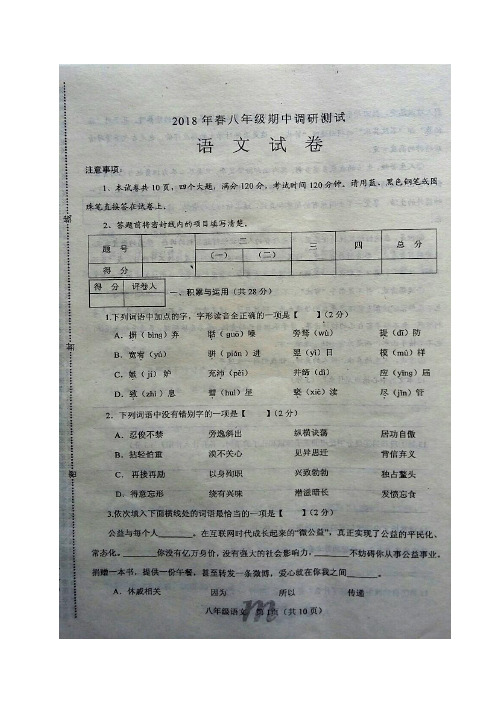 2018 年春八年级期中调研测试
语 文 试 卷
注意事项:
1、本试卷共 10 页，四个大题，满分 120 分，考试时间 120 分钟。请用蓝、黑色钢笔或圆
珠笔直接答在试卷上。
2、答题前将密封线内的项目填写清楚。
题 号 一 二 三 四 总 分
（一） （二）
得 分
得 分 评卷人
一、积累与运用（共 28 分）
1.下列词语中加点的字，字形读音全正确的一项是【 】(2 分)
A．摒（bìng）弃 聒（guō）噪 旁骛（wù） 提（dī）防
B．宽宥（yòu） （piān）进 翌（yì）日 模（mú）样
C．（jí）妒 充沛（pèi） （dì） 应（yīng）届
D．（zhì）息 （huì）星 亵（xiè）渎 尽（jǐn）管
2．下列词语中没有错别字的一项是【 】(2 分)
A．忍俊不禁 旁逸斜出 纵横诀荡 居功自傲
B．拈轻怕重 漠不关心 见异思迁 背信弃义
C．再接再励 以身殉职 兴致勃勃 独占鳌头
D．得意忘形 饶有兴味 潜滋暗长 发愤忘食
3.依次填入下面横线处的词语最恰当的一项是【 】(2 分)
公益与每个人______。在互联网时代成长起来的“微公益”，真正实现了公益的平民化、
常态化。______你没有亿万身价，没有强大的社会影响力，______不妨碍你从事公益事业。
捐赠一本书，提供一份午餐，甚至转发一条微博，爱心就在你我之间______。
A．休戚相关 因为 所以 传递
八年级语文 第 1页（共 10 页）
m